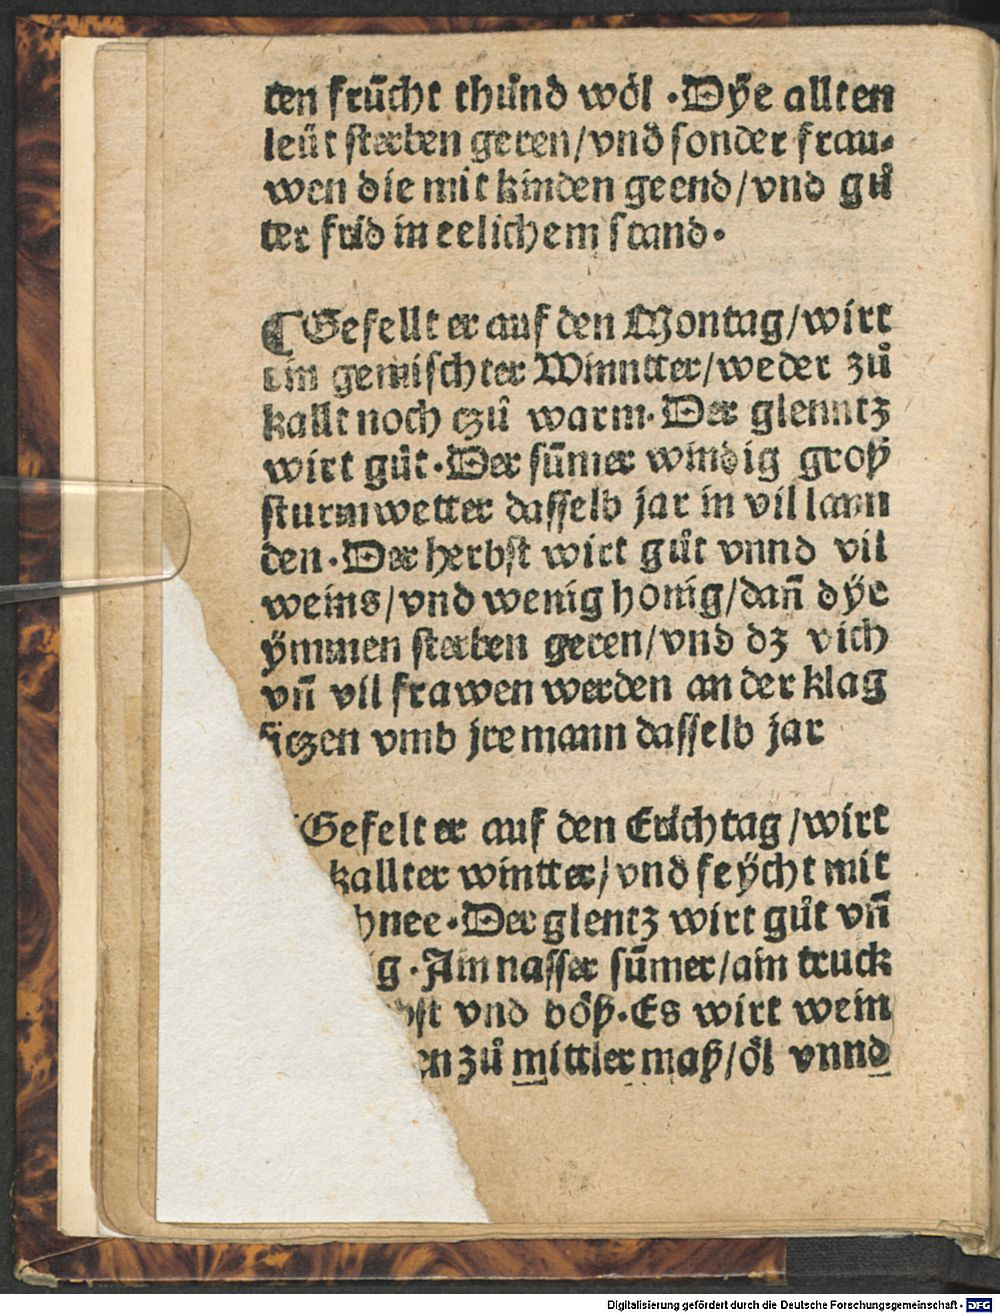 ten frücht thůnd wöl . Dÿe allten
leüt sterben geren/vnd sonder frau⸗
wen die mit kinden geend/vnd gů
ter frid in eelichem stand.
¶Gefellt er auf den Montag/wirt
ein gemischter Winntter/weder zů
kallt noch czů warm. Der glenntz
wirt gůt. Der sūmer windig groß
sturmwetter dasselb jar in vil lann
den. Der herbst wirt gůt vnnd vil
weins/vnd wenig honig/dañ dÿe
ÿmmen sterben geren/vnd dz vich
vñ vil frawen werden an der klag
siczen vmb jre mann dasselb jar
Gefelt er auf den Erichtag/wirt
kallter wintter/vnd feÿcht mit
hnee. Der glentz wirt gůt vñ
ig. Ain nasser sūmer/ain truck
bst vnd böß. Es wirt wein
en zů mittler maß/öl vnnd
Digitalisierung gefördert durch die Deutsche Forschungsgemeinschaft - DFG